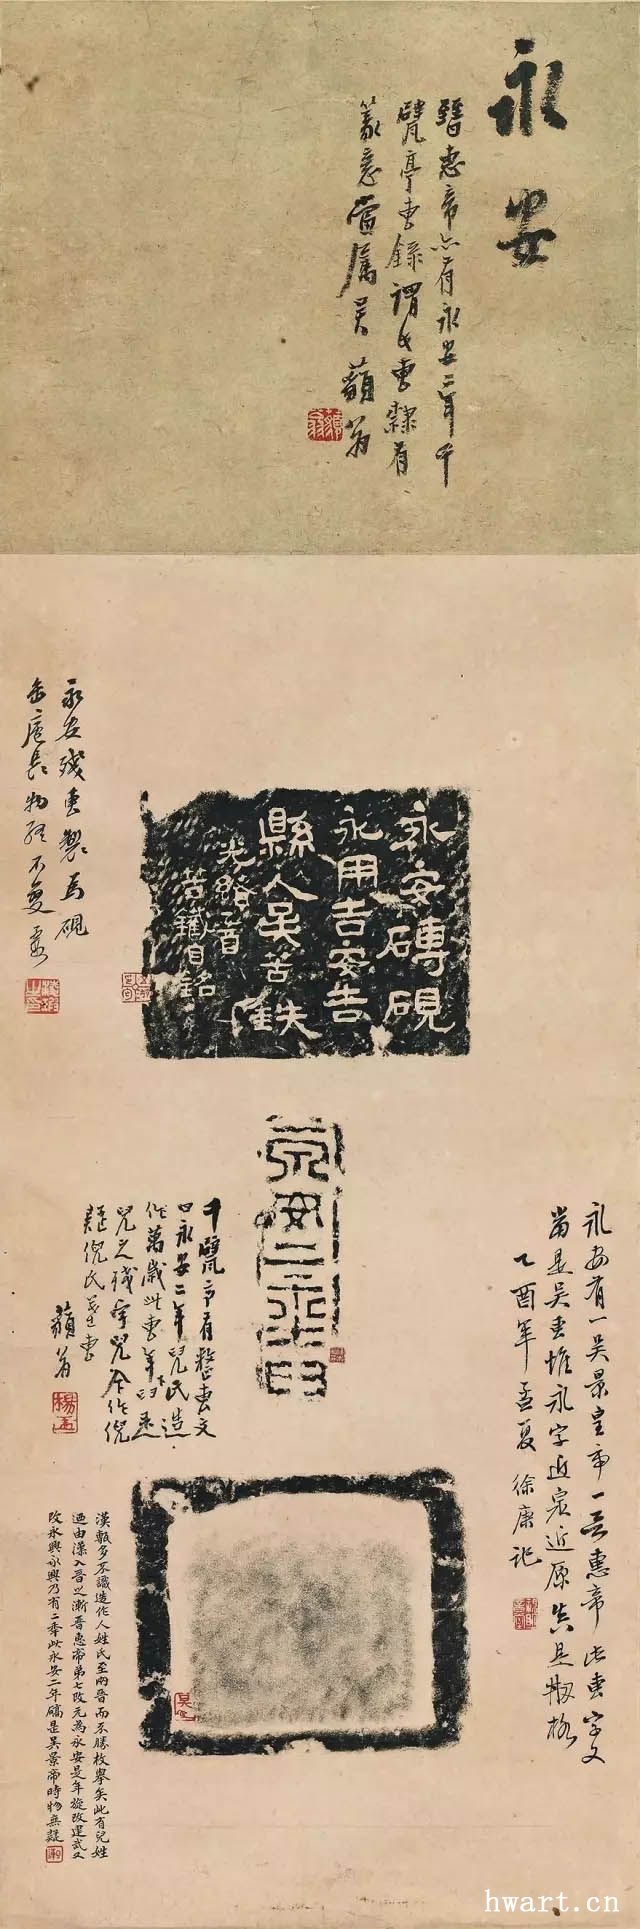 永安
晉惠帝亦有永安二年千
甓亭專錄謂此專隸有
篆意當屬吳 藐翁
永安殘專製為硯
缶廬長物經不變
永安磚硯
永用吉安吉
縣人吳苦鐵
光緒
苦鐵自銘
永安二年
千甓亭有整專文
曰永安二年兒氏造
作萬歲此專年下
兒之殘字兒今作倪
疑倪氏造專
藐翁
楊
永安有一吳景皇帝一晉惠帝此專字文
當是吳專惟永字近泉近原
乙酉年孟夏徐康記
漢甎多不識造作人姓氏至兩晉而不勝枚舉矣此有兒姓
迺由漢入晉之漸晉惠帝第七改元為永安是年旋改建武又
改永興永興乃有二年此永安二年磚是吳景帝時物無疑
hwart.cn